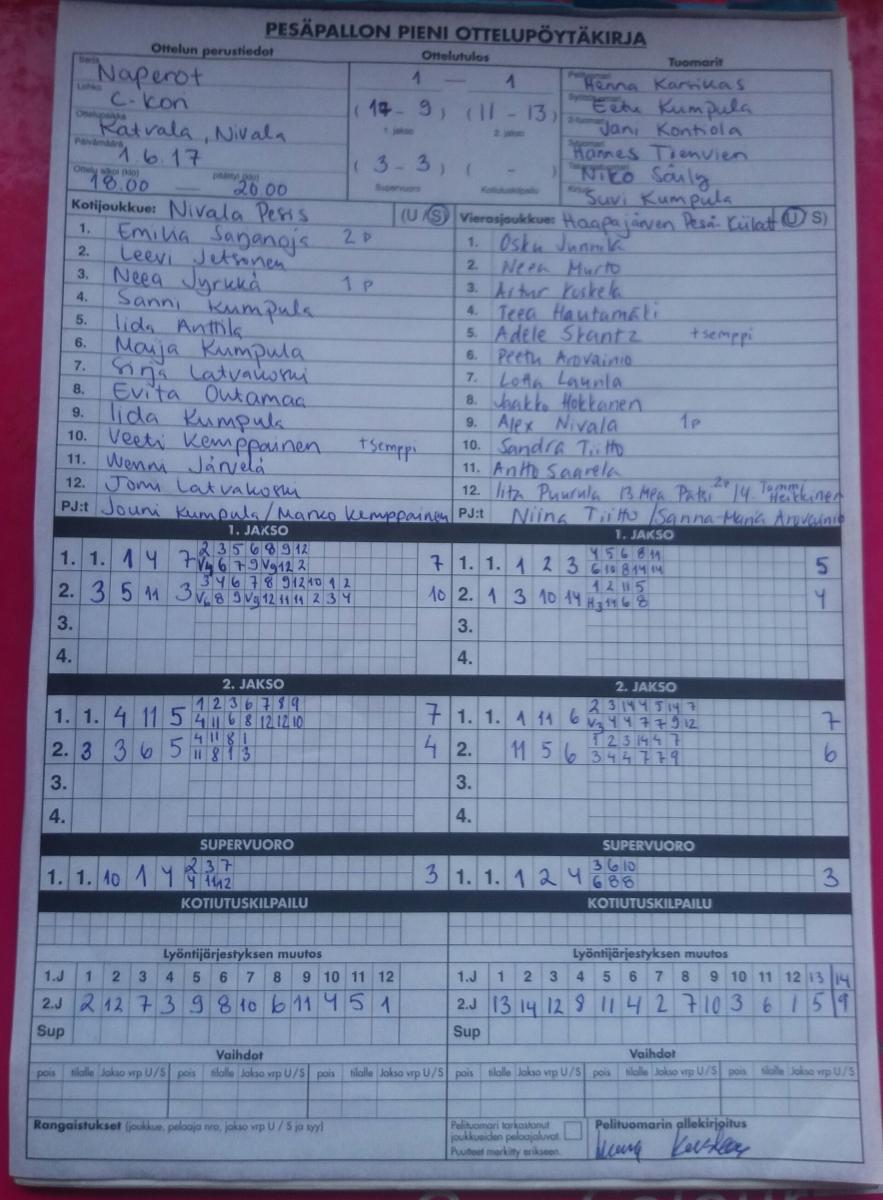 PESÄPALLON PIENI OTTELUPÖYTÄKIRJA
Ottelun perustiedot Ottelutulos Tuomarit
Sarja Naperot 1 — 1 Henna Karsikas
Lohko C-Kori (17 - 9) (11 - 13) Eetu Kumpula
Ottelupaikka Katvala, Nivala 1. jakso 2. jakso Jani Kontiola
Päivämäärä 1.6.17 (3 - 3) ( - ) Hannes
Ottelu alkoi (klo) 18.00 — päättyi (klo) 20.00 Supervuoro Kotiutuskilpailu Niko
Kirjuri Suvi Kumpula
Kotijoukkue: Nivala Pesis (U/S) Vierasjoukkue: Haapajärven Pesä-Kiilat (U S)
1. Emilia 2p 1. Osku Junnila
2. Leevi Jetsonen 2. Neea Murto
3. Neea Jyrkkä 1p 3. Artur Koskela
4. Sanni Kumpula 4. Teea Hautamäki
5. Iida Anttila 5. Adele Frantz +semppi
6. Maija Kumpula 6. Peetu Arovainio
7. Sinja Latvakoski 7. Lotta Laurila
8. Evita Outamaa 8. Jaakko Hokkanen
9. Iida Kumpula 9. Alex Nivala 1p
10. Veeti Kemppainen +semppi 10. Sandra Tiitto
11. Wenni Järvelä 11. Antto Saarela
12. Jomi Latvakoski 12. Iita Puurula 13 Mea Patsi 2p 14. Tommi Heikkinen
PJ:t Jouni Kumpula/Marko Kemppainen PJ:t Niina Tiitto /Sanna-Maria Arovainio
1. JAKSO 1. JAKSO
1. 1. 1 4 7 2 3 5 6 8 9 12 7 1. 1. 1 2 3 4 5 6 8 11 5
V4 6 7 9 V9 12 2 6 10 8 14 14
2. 3 5 11 3 3 4 6 7 8 9 12 10 1 2 10 2. 1 3 10 14 1 2 11 5 4
V6 8 9 V9 12 11 11 2 3 4 H3 14 6 8
3. 3.
4. 4.
2. JAKSO 2. JAKSO
1. 1. 4 11 5 1 2 3 6 7 8 9 7 1. 1. 1 11 6 2 3 14 4 5 14 7 7
4 11 6 8 12 12 10 V3 4 4 7 7 9 12
2. 3 3 6 5 4 11 8 1 4 2. 11 5 6 1 2 3 14 4 7 6
11 8 1 3 3 4 4 7 7 9
3. 3.
4. 4.
SUPERVUORO SUPERVUORO
1. 1. 10 1 4 2 3 7 3 1. 1. 1 2 4 3 6 10 3
4 11 12 6 8 8
KOTIUTUSKILPAILU KOTIUTUSKILPAILU
Lyöntijärjestyksen muutos Lyöntijärjestyksen muutos
1.J 1 2 3 4 5 6 7 8 9 10 11 12 1.J 1 2 3 4 5 6 7 8 9 10 11 12 13 14
2.J 2 12 7 3 9 8 10 6 11 4 5 1 2.J 13 14 12 8 11 4 2 7 10 3 6 1 5 9
Sup Sup
Vaihdot Vaihdot
pois tilalle Jakso vrp U/S pois tilalle Jakso vrp U/S pois tilalle Jakso vrp U/S pois tilalle Jakso vrp U/S pois tilalle Jakso vrp U/S pois tilalle Jakso vrp U/S
Rangaistukset (joukkue, pelaaja nro, jakso vrp U / S ja syy) Pelituomari tarkastanut Pelituomarin allekirjoitus
joukkueiden pelaajaluvat.
Puutteet merkitty erikseen.